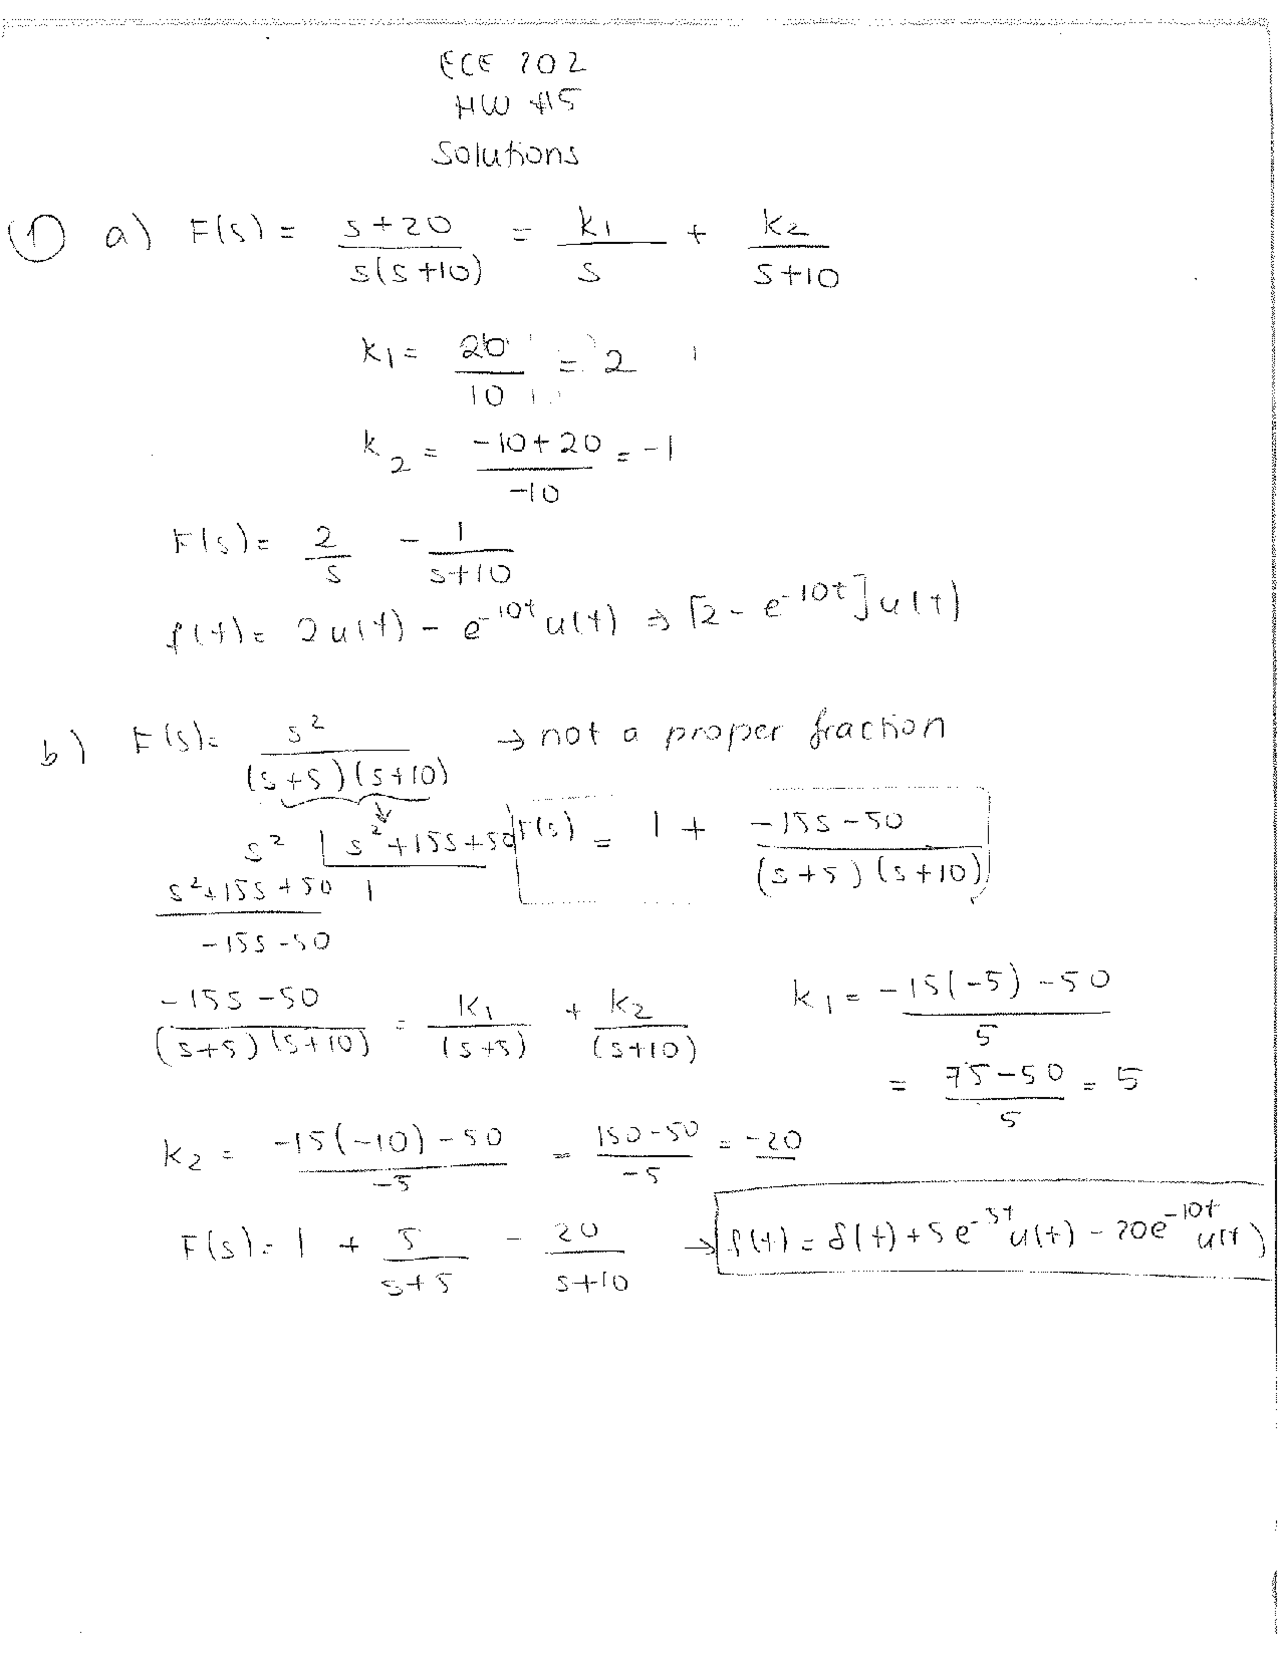 ECE 202
HW #15
Solutions
① a) F(s) = s+20 / s(s+10) = k1 / s + k2 / s+10
k1 = 20 / 10 = 2
k2 = -10+20 / -10 = -1
F(s) = 2 / s - 1 / s+10
f(t) = 2u(t) - e^-10t u(t) ⇒ [2 - e^-10t] u(t)
b) F(s) = s^2 / (s+5)(s+10) → not a proper fraction
s^2 | s^2+15s+50
F(s) = 1 + -15s-50 / (s+5)(s+10)
s^2+15s+50 1
-15s-50
-15s-50 / (s+5)(s+10) = k1 / (s+5) + k2 / (s+10)
k1 = -15(-5)-50 / 5
= 75-50 / 5 = 5
k2 = -15(-10)-50 / -5 = 150-50 / -5 = -20
F(s) = 1 + 5 / s+5 - 20 / s+10 → f(t) = δ(t) + 5e^-5t u(t) - 20e^-10t u(t)